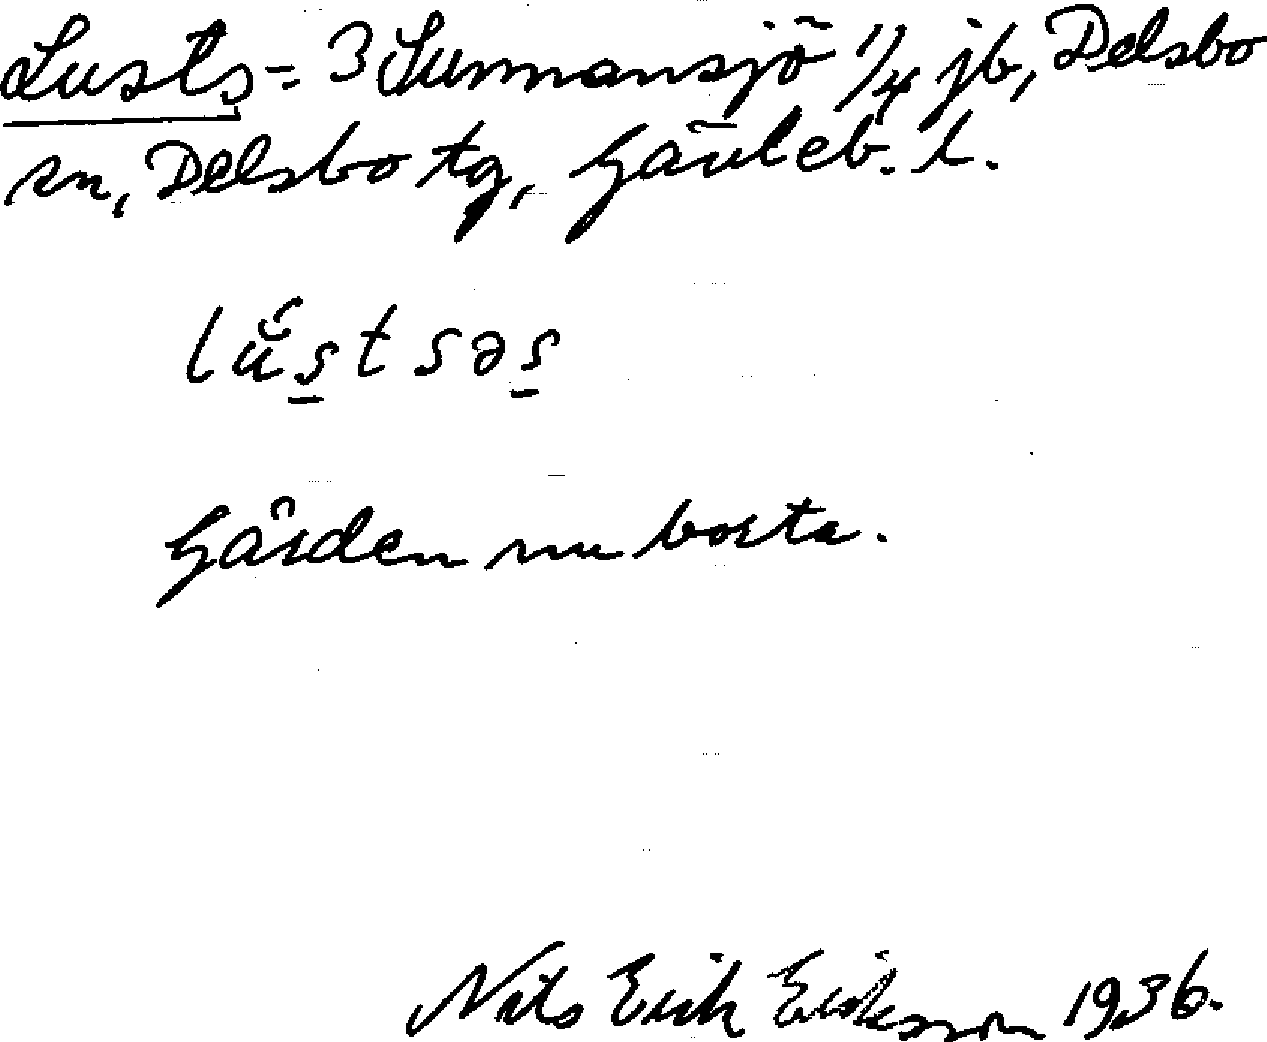 Lusts = 3 Sunnansjö 1/4 jb, Delsbo
sn, Delsbo tg, Gävleb. l.
lŭ́s̠tsəs̠
Gården nu borta.
Nils Erik Eriksson 1936.